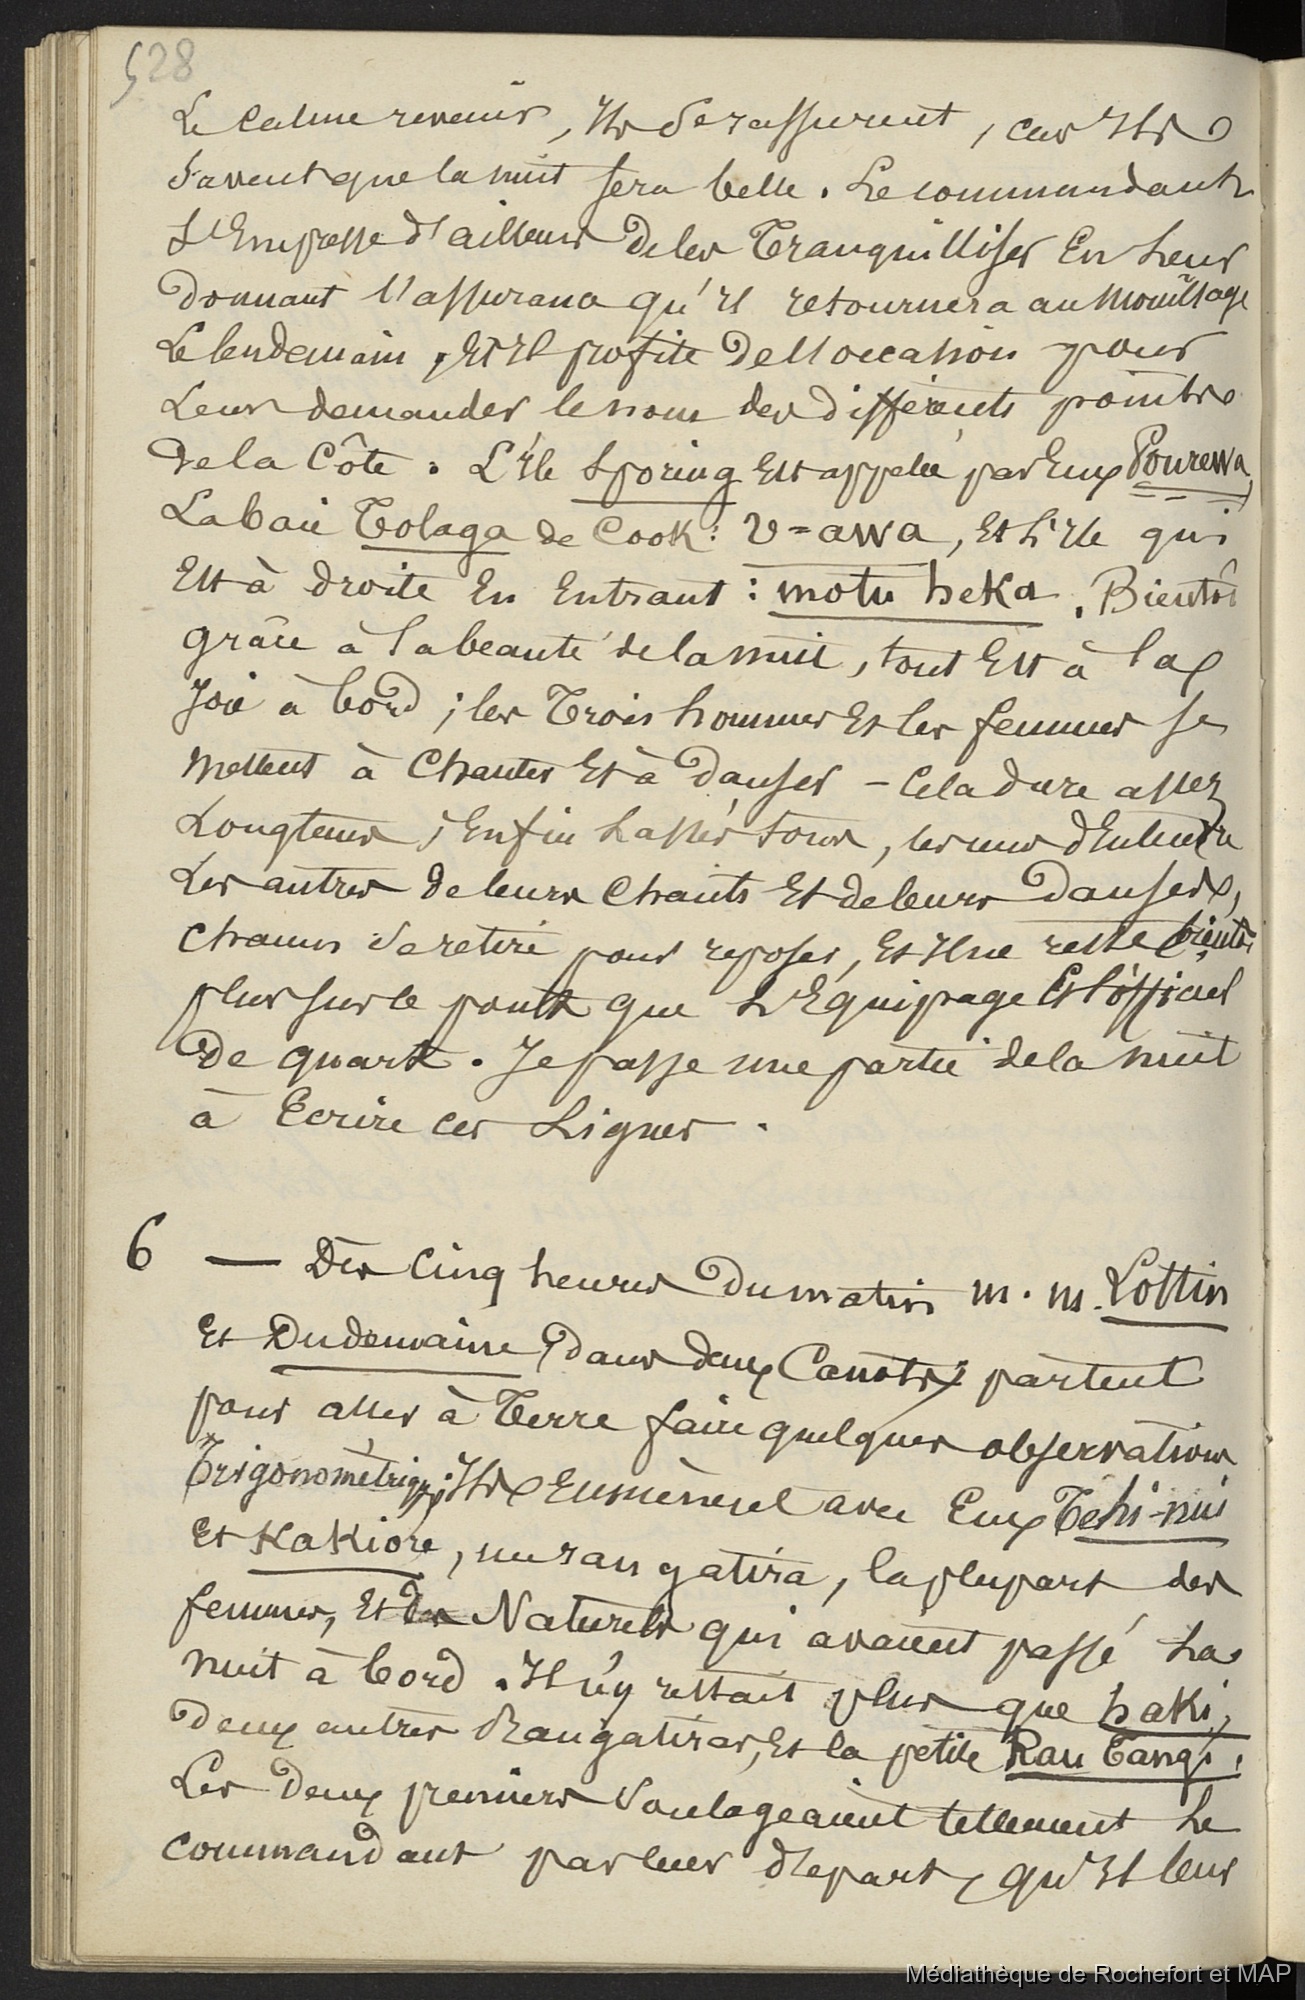 528
Le calme revenir, Ils se rassurent, car Ils
savent que la nuit sera belle. Le commandant
S'Empresse d'ailleurs de les Tranquilliser En Leur
Donnant l'assurance qu'Il retournera au Mouillage
Le lendemain, Et Il profite de l'occasion pour
Leur demander le nom des différents points
de la Côte. L'Ile Sporing Est appelée par Eux Pourewa,
La baie Tolaga de Cook : U=awa, Et L'Ile qui
Est à droite En Entrant : motu heka. Bientôt
grâce à la beauté de la nuit, tout Est à la
Joie à bord ; les Trois hommes Et les femmes se
Mettent à Chanter Et à Danser - Cela dure assez
Longtems ; Enfin Lassés tous, les uns d'Entendre
Les autres de leurs Chants Et de leurs Danses,
Chacun se retire pour reposer, Et Il ne reste bientôt
plus sur le pont que L'Equipage Et l'officier
De quart. Je passe une partie de la nuit
à Ecrire ces Lignes.
6 — Dès Cinq heures Du matin m. m. Lottin
Et Dudemaine, dans deux Canots, partent
pour aller à Terre faire quelques observations
Trigonométriq; Ils Emmènent avec Eux Tehi-nui
Et Kakiore, un rangatira, la plupart des
femmes, Et des Naturels qui avaient passé La
nuit à bord. Il n'y restait plus que haki,
Deux autres Rangatiras, Et la petite Rau Tangi.
Les Deux premiers Soulageaient tellement Le
Commandant par leur départ, qu'Il leur
Médiathèque de Rochefort et MAP